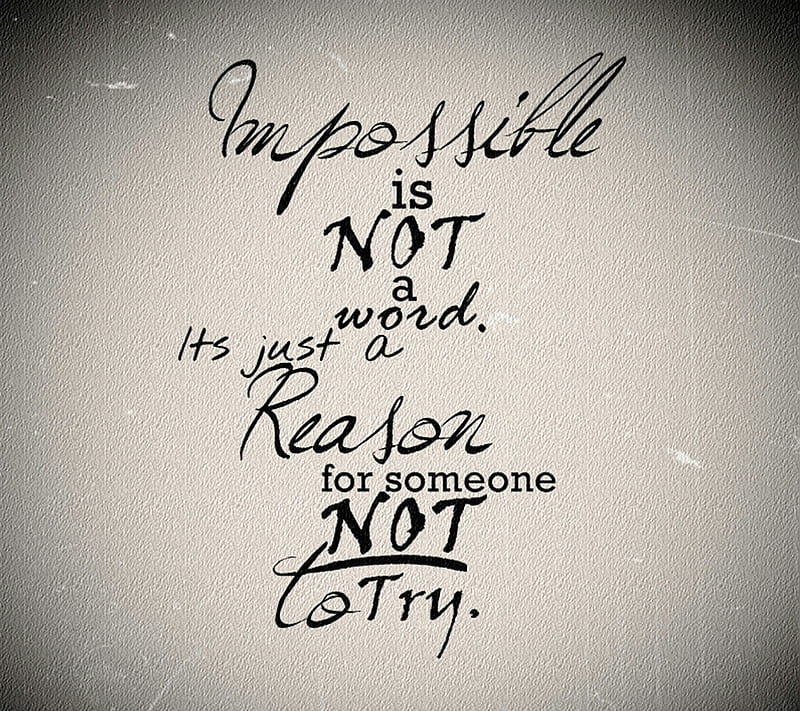 Impossible
is
NOT
a
word.
Its just a
Reason
for someone
NOT
to Try.